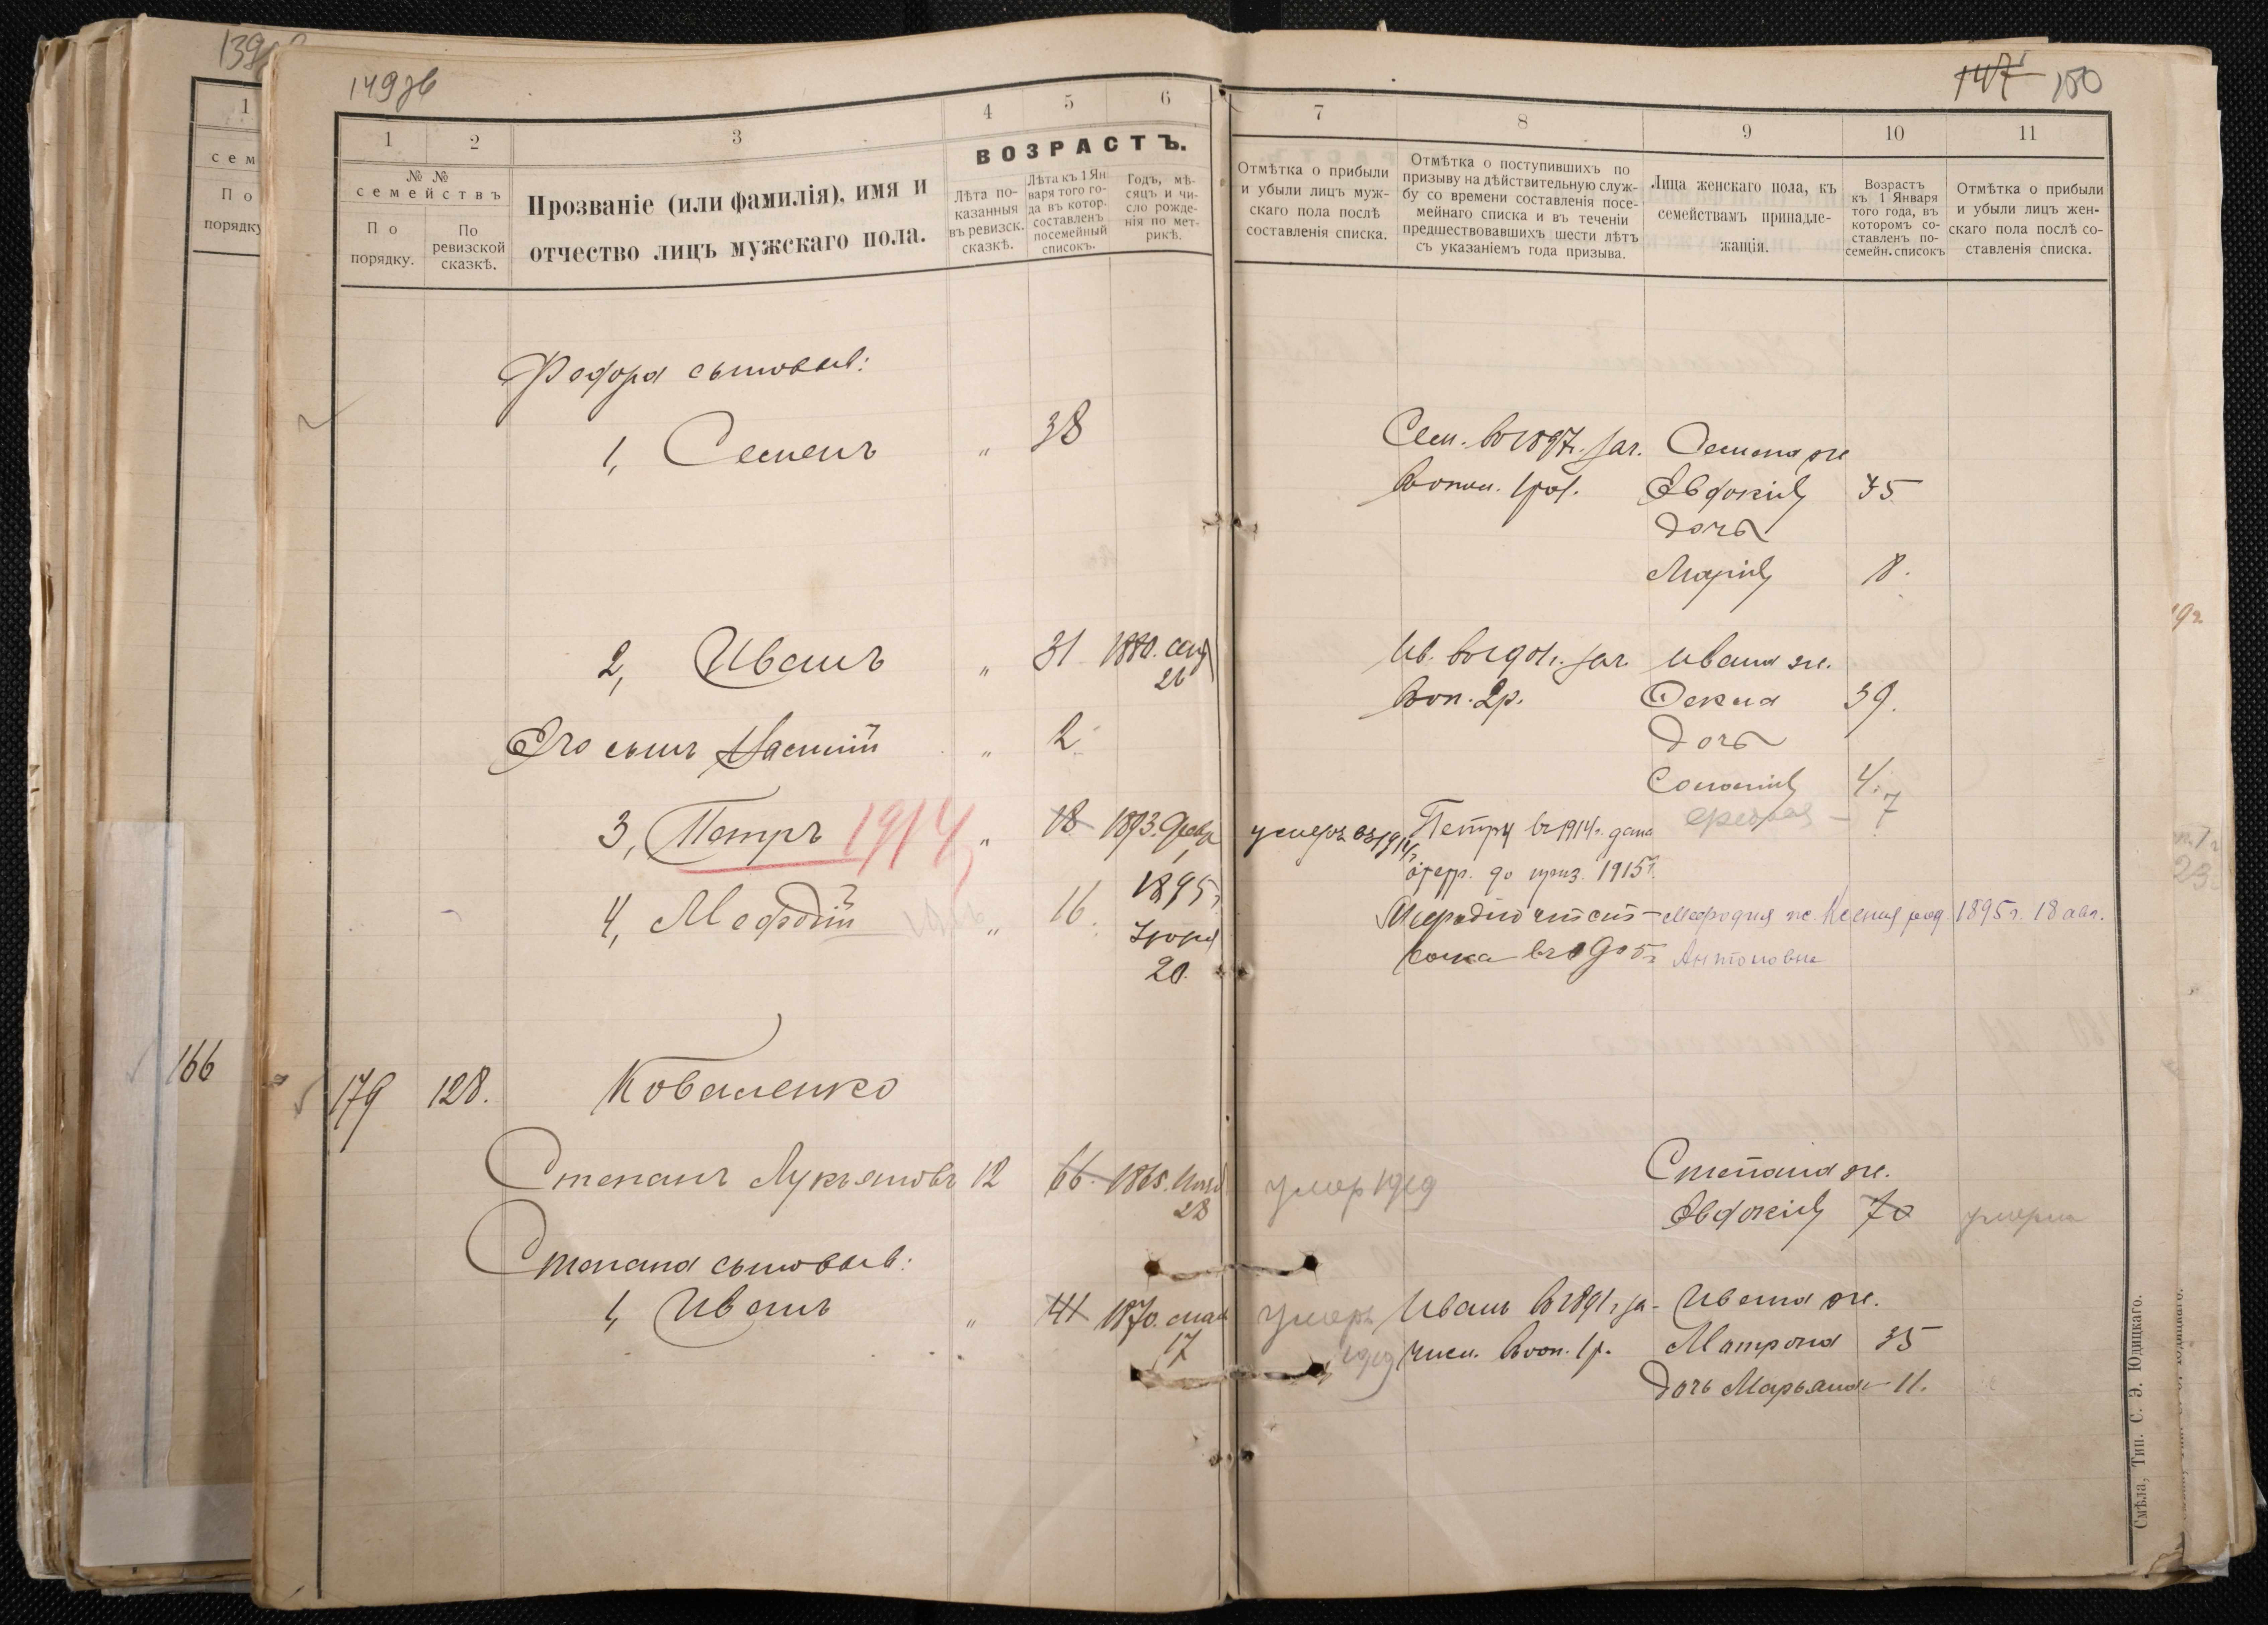 149 зв
147 150
1
2
3
4
5
6
ВОЗРАСТЪ.
№ №
семействъ
По
порядку.
По
ревизской
сказкѣ.
Прозваніе (или фамилія), имя и
отчество лицъ мужскаго пола.
Лѣта по-
казанныя
въ ревизск.
сказкѣ.
Лѣта къ 1 Ян
варя того го-
да въ котор.
составленъ
посемейный
списокъ.
Годъ, мѣ-
сяцъ и чи-
сло рожде-
нія по мет-
рикѣ.
7
8
9
10
11
Отмѣтка о прибыли
и убыли лицъ муж-
скаго пола послѣ
составленія списка.
Отмѣтка о поступившихъ по
призыву на дѣйствительную служ-
бу со времени составленія посе-
мейнаго списка и въ теченіи
предшествовавшихъ шести лѣтъ
съ указаніемъ года призыва.
Лица женскаго пола, къ
семействамъ принадле-
жащія.
Возрастъ
къ 1 Января
того года, въ
которомъ со-
ставленъ по-
семейн. списокъ
Отмѣтка о прибыли
и убыли лицъ жен-
скаго пола послѣ со-
ставленія списка.
Федора сыновья:
1, Семенъ " 38
Сем. въ 1897г. зач. Семена же
в опол. 1 раз. Евдокія 35
дочь
Марія 8.
2, Иванъ " 31 1880. сент
26
Ив. въ 1901г. зач. Ивана же.
в оп. 2 р. Фекла 39.
Его сынъ " 2
дочь
Соломія 4.
7
3, Петръ 1914 " 18 1893. Февр
1
умеръ въ 1914г. Петру въ 1914г. дана
отср. до приз. 1915г.
4, Мефодій " 16. 1895г
20.
Мефодій числит- Мефодия же. Ксения рожд. 1895 г. 18 авг.
Антоновна
166
179 128. Коваленко
Степанъ Лукьяновъ 12 66.
28
умер 1919
Степана же.
Евдокія 70 умерла
Степана сыновья:
1, Иванъ " 41 1870. мая
17
умеръ 1919
Иванъ въ 1891 г за- Ивана же.
числ. в оп. 1 р. Матрона 35
дочь Марьяна 11.
Смѣла, Тип. С. Э. Юдицкаго.